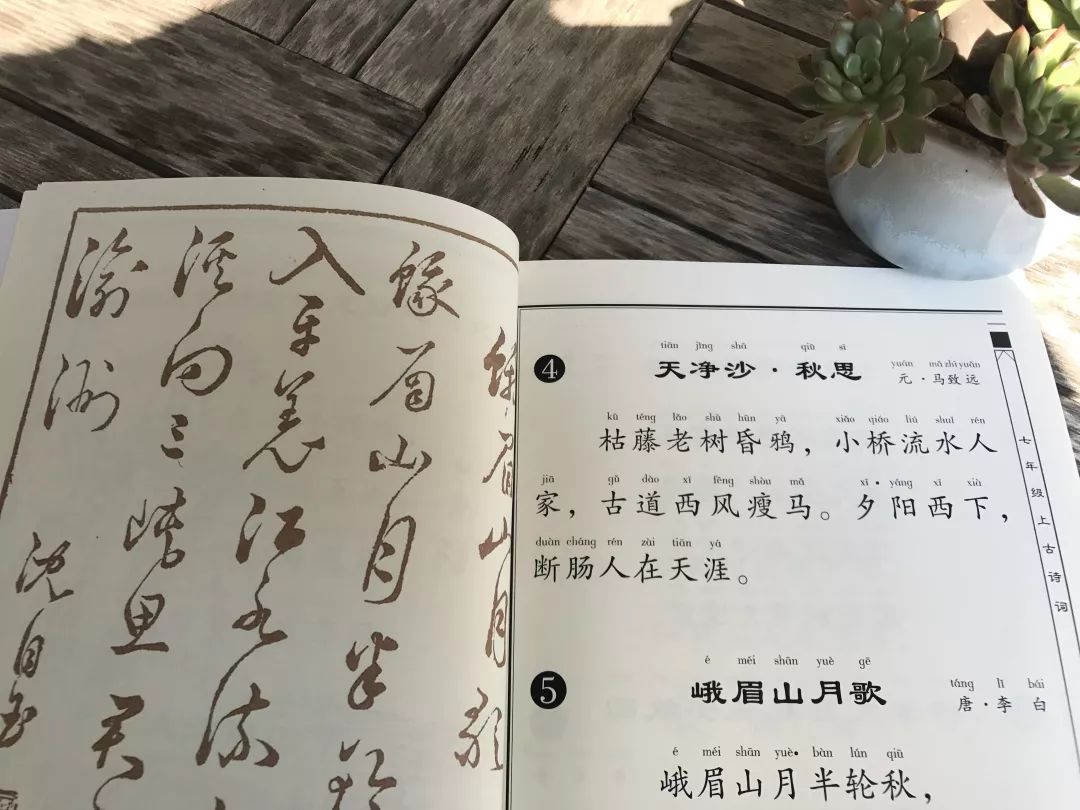 峨眉山月歌
峨眉山月半輪
入平羌江水流
溪向三峡思君
渝洲
tiān jìng shā qiū sī
4 天净沙·秋思
yuán mǎ zhì yuǎn
元·马致远
kū téng lǎo shù hūn yā xiǎo qiáo liú shuǐ rén
枯藤老树昏鸦，小桥流水人
jiā gǔ dào xī fēng shòu mǎ xī yáng xī xià
家，古道西风瘦马。夕阳西下，
duàn cháng rén zài tiān yá
断肠人在天涯。
é méi shān yuè gē
5 峨眉山月歌
táng lǐ bái
唐·李白
é méi shān yuè bàn lún qiū
峨眉山月半轮秋，
七年级上古诗词